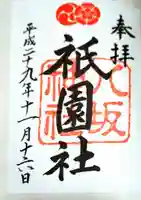 奉拝
八坂神社
祇園社
平成二十九年十一月十六日